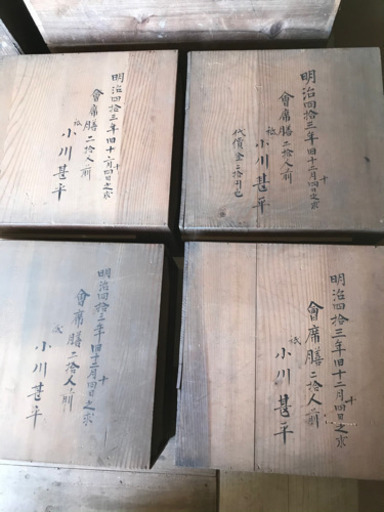 明治四拾三年旧十二月十四日之求
會席膳二拾人前
小川甚平
代價金二拾円也
明治四拾三年旧十二月十四日之求
會席膳二拾人前
小川甚平
明治四拾三年旧十二月十四日之求
會席膳二拾人前
小川甚平
明治四拾三年旧十二月十四日之求
會席膳二拾人前
小川甚平